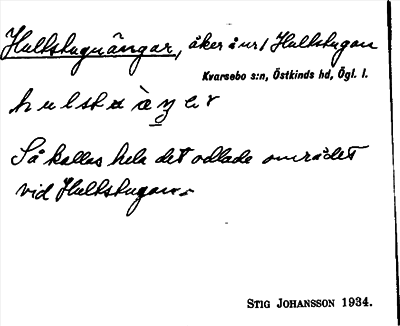 Hulkstuguängar, åker å nr 1 Hulkstugan
Kvarsebo s:n, Östkinds hd, Ögl. l.
Så kallas hela det odlade området
vid Hulkstugan.
STIG JOHANSSON 1934.